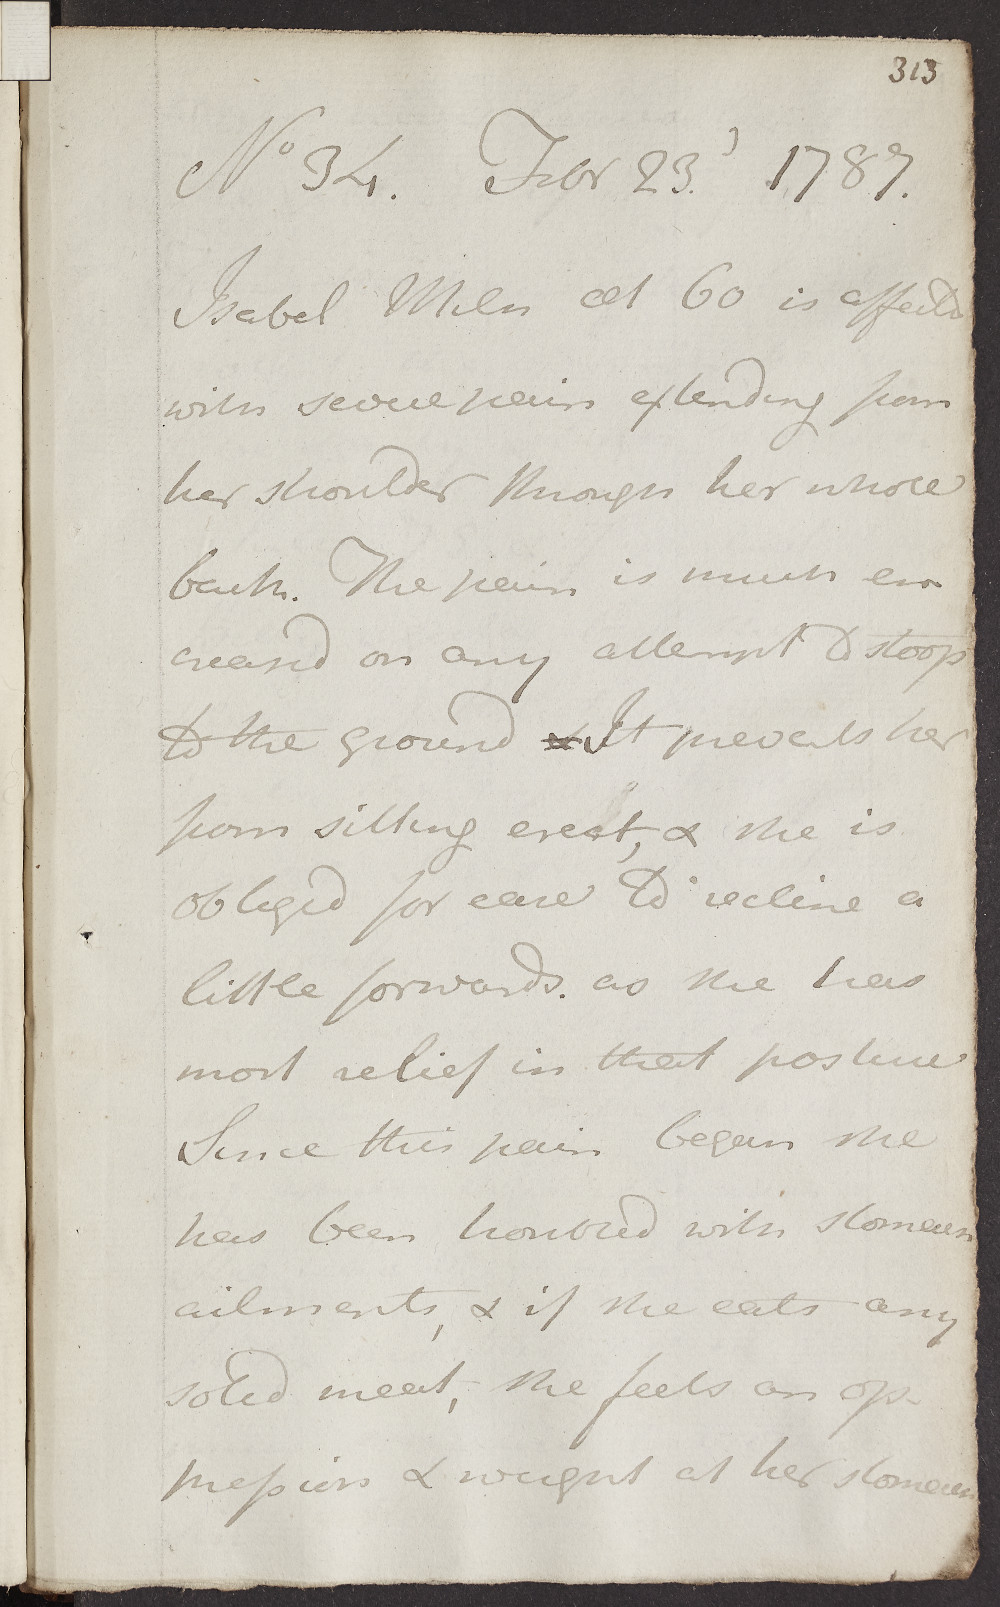 313
No 34. Febr 23.d 1787.
Isabel Miln æt 60 is affectd
with severe pain extending from
her shoulder through her whole
back. The pain is much en-
creased on any attempt to stoop
to the ground & It prevents her
from sitting erect, & she is
obliged for ease to recline a
little forwards. as she has
most relief in that posture
Since this pain began she
has been troubled with stomach
ailments, & if she eats any
solid meat, she feels an op-
pression & weight at her stomach